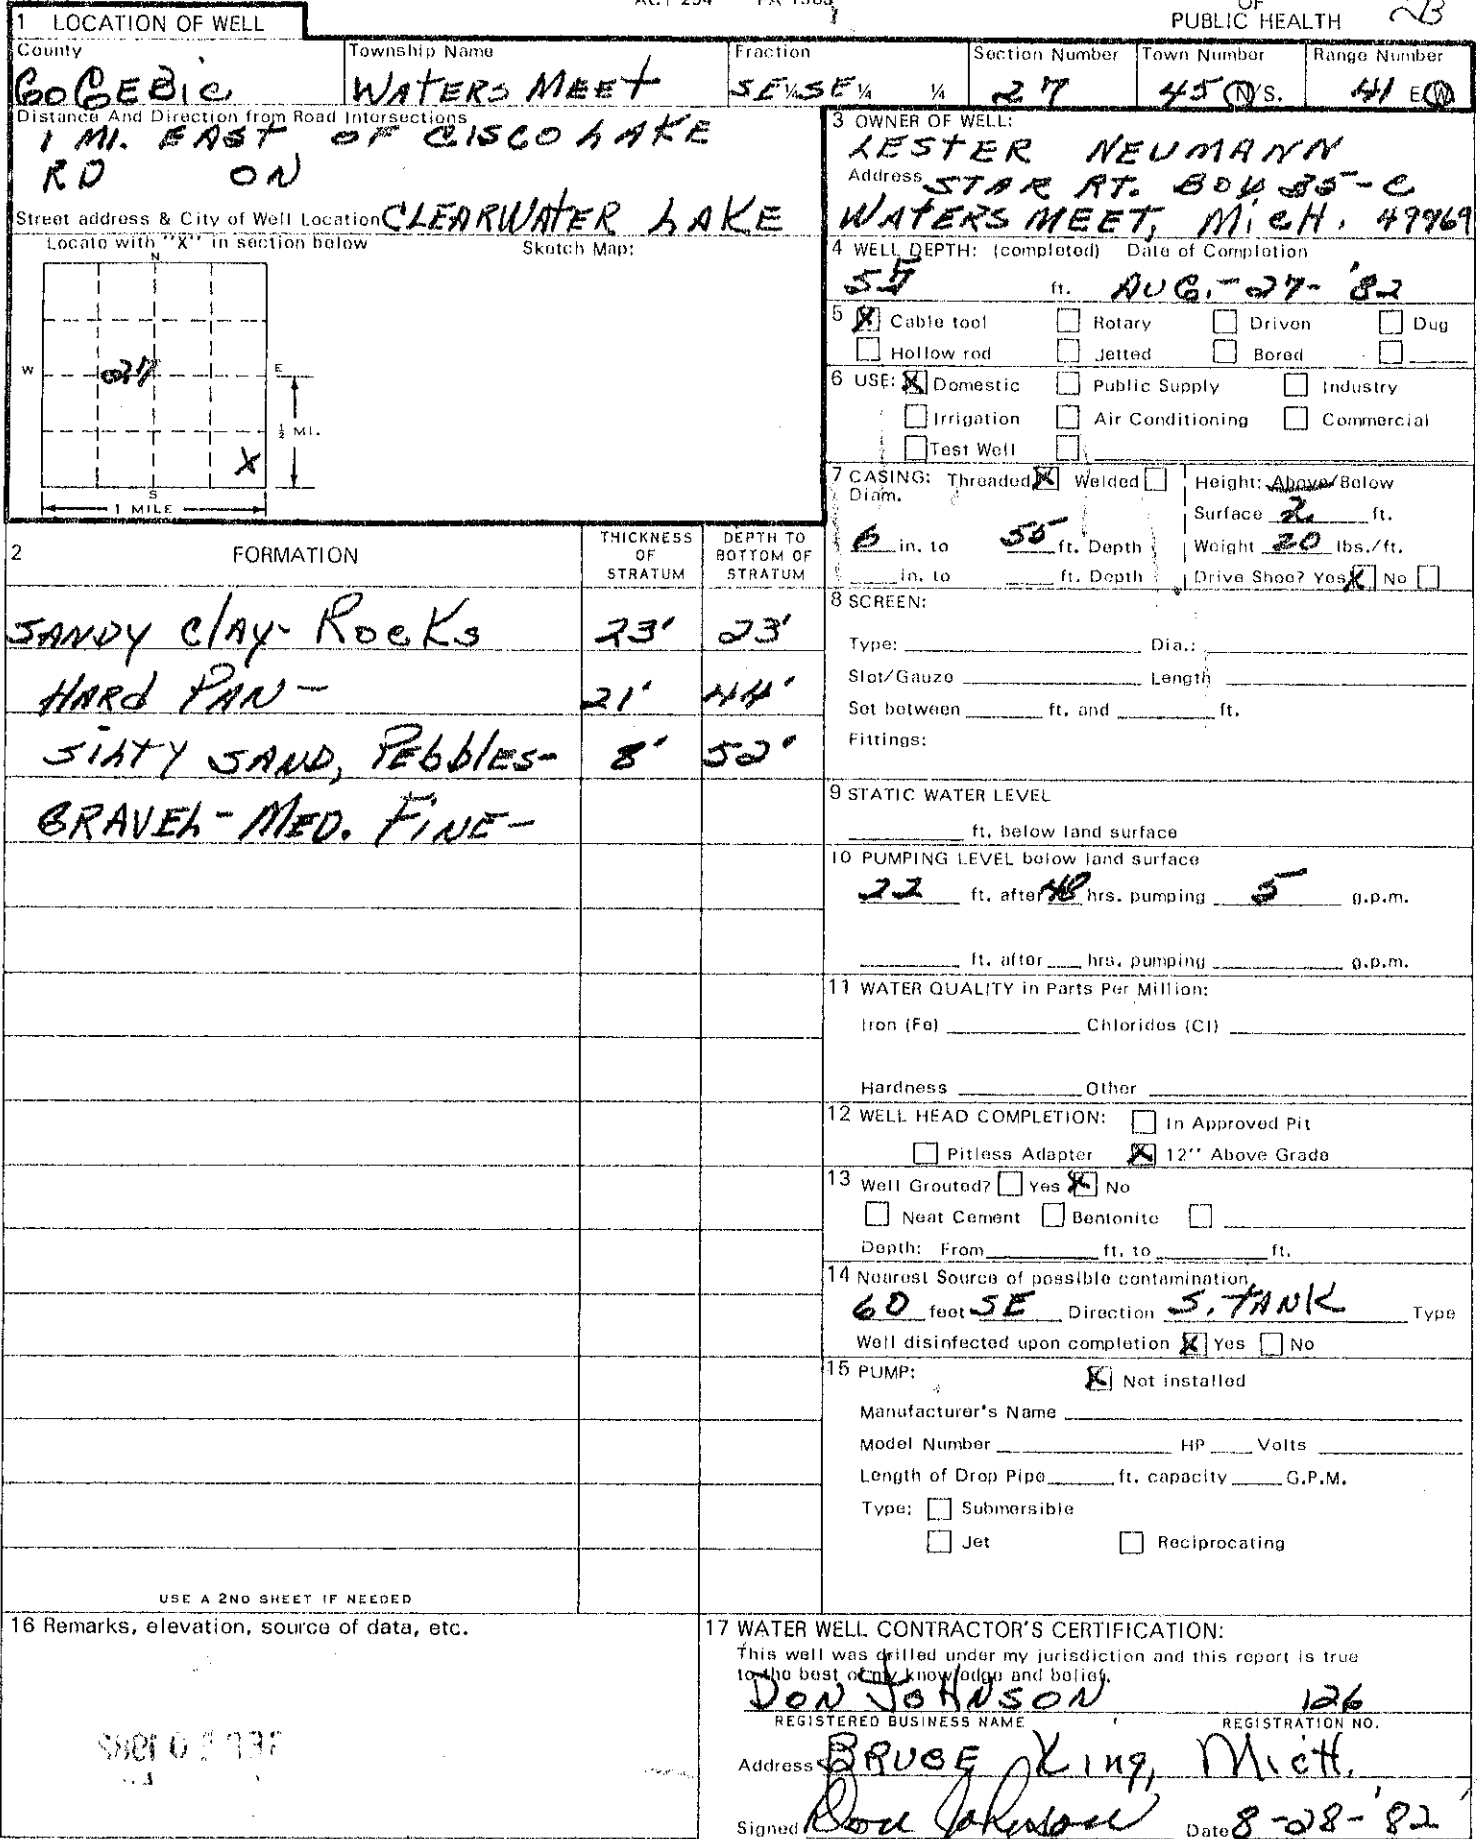 OF
PUBLIC HEALTH
2B
1 LOCATION OF WELL
County
GOGEBIC
Township Name
WATERS MEET
Fraction
SE¼SE¼ ¼
Section Number
27
Town Number
45 N/S.
Range Number
41 E/W
Distance And Direction from Road Intersections
1 MI. EAST OF CISCO LAKE
RD ON
Street address & City of Well Location CLEARWATER LAKE
Locate with "X" in section below
Sketch Map:
N
27
W
E
½ MI.
X
S
1 MILE
3 OWNER OF WELL:
LESTER NEUMANN
Address STAR RT. BOX 35-C
WATERS MEET, MICH. 49969
4 WELL DEPTH: (completed) Date of Completion
55 ft. AUG.-27-'82
5 X Cable tool Rotary Driven Dug
Hollow rod Jetted Bored
6 USE: X Domestic Public Supply Industry
Irrigation Air Conditioning Commercial
Test Well
7 CASING: Threaded X Welded
Diam.
6 in. to 55 ft. Depth
in. to ft. Depth
Height: Above/Below
Surface 2 ft.
Weight 20 lbs./ft.
Drive Shoe? Yes X No
2 FORMATION
THICKNESS OF STRATUM
DEPTH TO BOTTOM OF STRATUM
SANDY CLAY- ROCKS 23' 23'
HARD PAN- 21' 44'
SILTY SAND, PEbblES- 8' 52'
GRAVEL-MED. FINE-
8 SCREEN:
Type: Dia.:
Slot/Gauze Length
Set between ft. and ft.
Fittings:
9 STATIC WATER LEVEL
ft. below land surface
10 PUMPING LEVEL below land surface
22 ft. after 48 hrs. pumping 5 g.p.m.
ft. after hrs. pumping g.p.m.
11 WATER QUALITY in Parts Per Million:
Iron (Fe) Chlorides (Cl)
Hardness Other
12 WELL HEAD COMPLETION: In Approved Pit
Pitless Adapter X 12" Above Grade
13 Well Grouted? Yes X No
Neat Cement Bentonite
Depth: From ft. to ft.
14 Nearest Source of possible contamination
60 feet SE Direction S. TANK Type
Well disinfected upon completion X Yes No
15 PUMP: X Not installed
Manufacturer's Name
Model Number HP Volts
Length of Drop Pipe ft. capacity G.P.M.
Type: Submersible
Jet Reciprocating
USE A 2ND SHEET IF NEEDED
16 Remarks, elevation, source of data, etc.
17 WATER WELL CONTRACTOR'S CERTIFICATION:
This well was drilled under my jurisdiction and this report is true
to the best of my knowledge and belief.
DON JOHNSON 126
REGISTERED BUSINESS NAME REGISTRATION NO.
Address BRUCE King, Mich.
Signed Don Johnson Date 8-28-'82